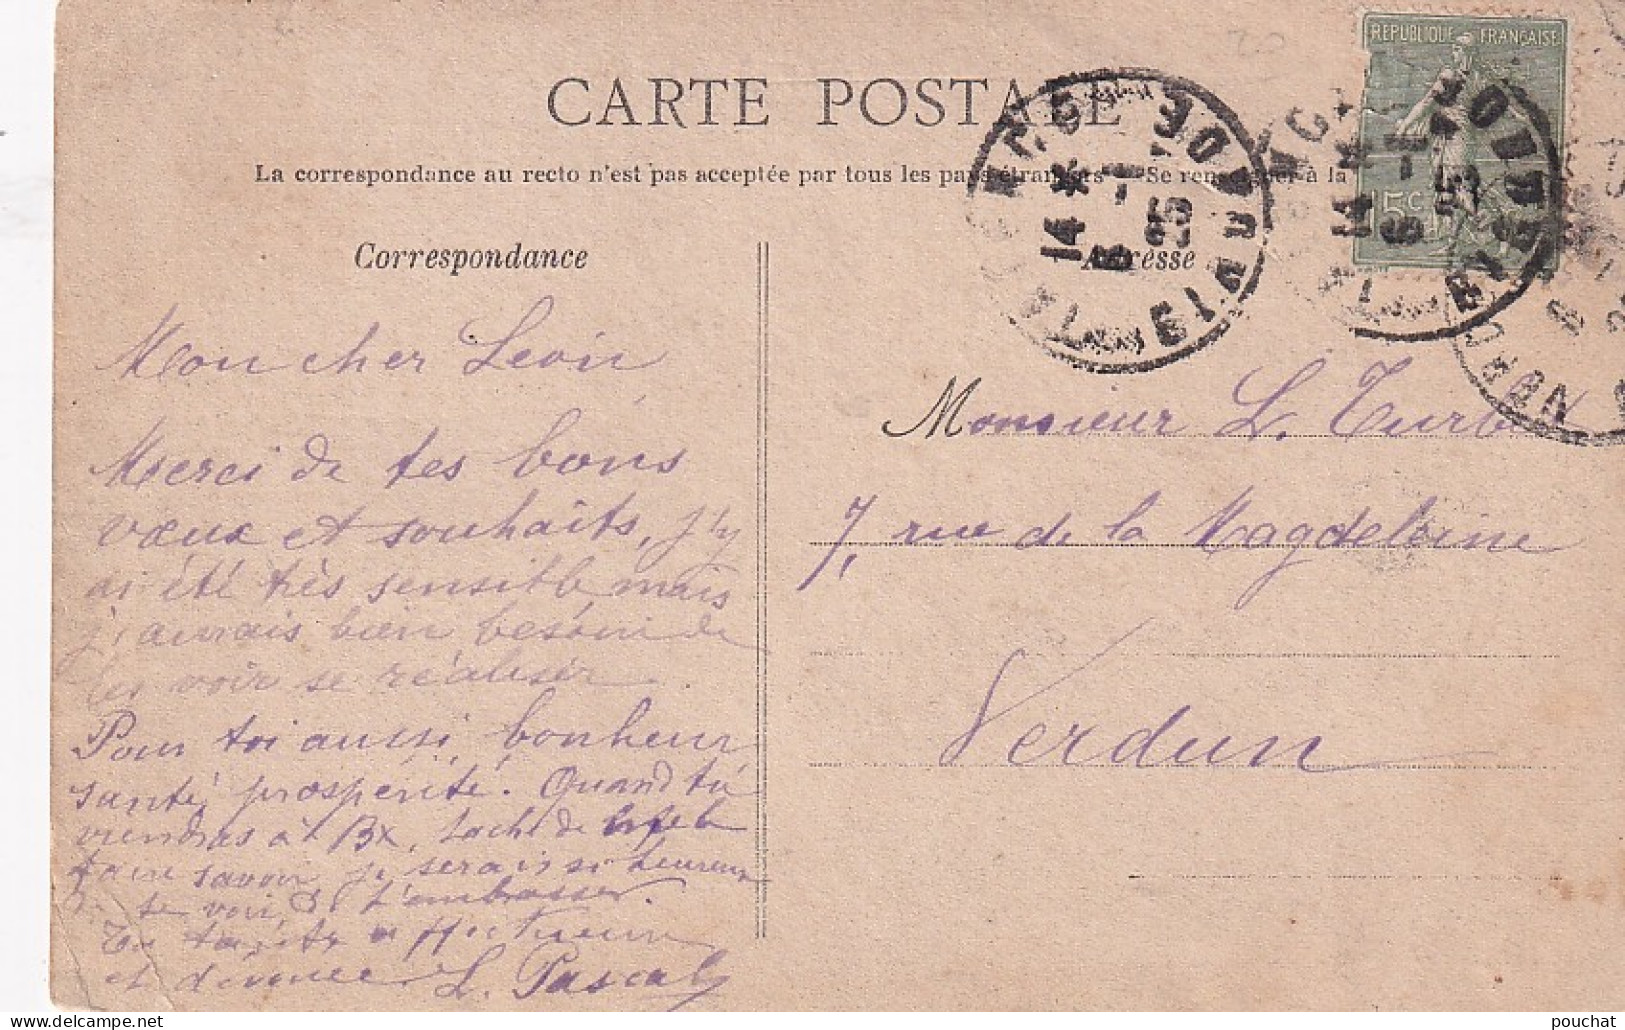 RÉPUBLIQUE FRANÇAISE
15c
CARTE POSTALE
La correspondance au recto n'est pas acceptée par tous les pays étrangers Se renseigner à la
14 * 6 - 1 25
14 * 6 - 1 25
VERDUN
Correspondance
Adresse
Mon cher Leoni
Merci de tes bons
vœux et souhaits, j'y
ai été très sensible mais
j'aurais bien besoin de
les voir se réaliser
Pour toi aussi, bonheur
santé, prospérité. Quand tu
viendras à Bx, tache de me le
faire savoir, je serais si heureux
de te voir, & t'embrasser.
Ta tante affectueuse
et dévouée L. Pascal
Monsieur L. Turbil
7, rue de la Magdeleine
Verdun
pouchat
www.delcampe.net